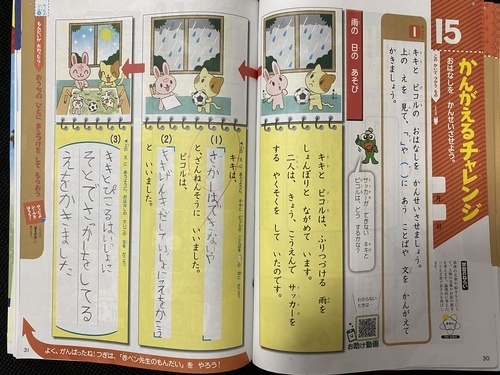 15
かんがえるチャレンジ
おはなしを かんせいさせよう。
月
日
1
キキと ピコルの おはなしを かんせいさせましょう。
上の えを 見て、「 」や( )に あう ことばや 文を かんがえて
かきましょう。
雨の 日の あそび
サッカーが できない キキと
ピコルは、どう するかな?
わからない
ときは…
お助け動画
キキと ピコルは、ふりつづける 雨を
しょんぼりと ながめて います。
二人は、きょう、こうえんで サッカーを
する やくそくを して いたのです。
30
(1)
キキは、
「さっかーはできないや
」
と、ざんねんそうに いいました。
(2)
ピコルは、
と いいました。
(3)
ききとぴこるはいっしょに
そとでさっかーをしてる
えをかきました
もんだいが おわったら
おうちの ひとに まるつけを して もらおう
31
よく、がんばったね! つぎは、「赤ペン先生のもんだい」を やろう!